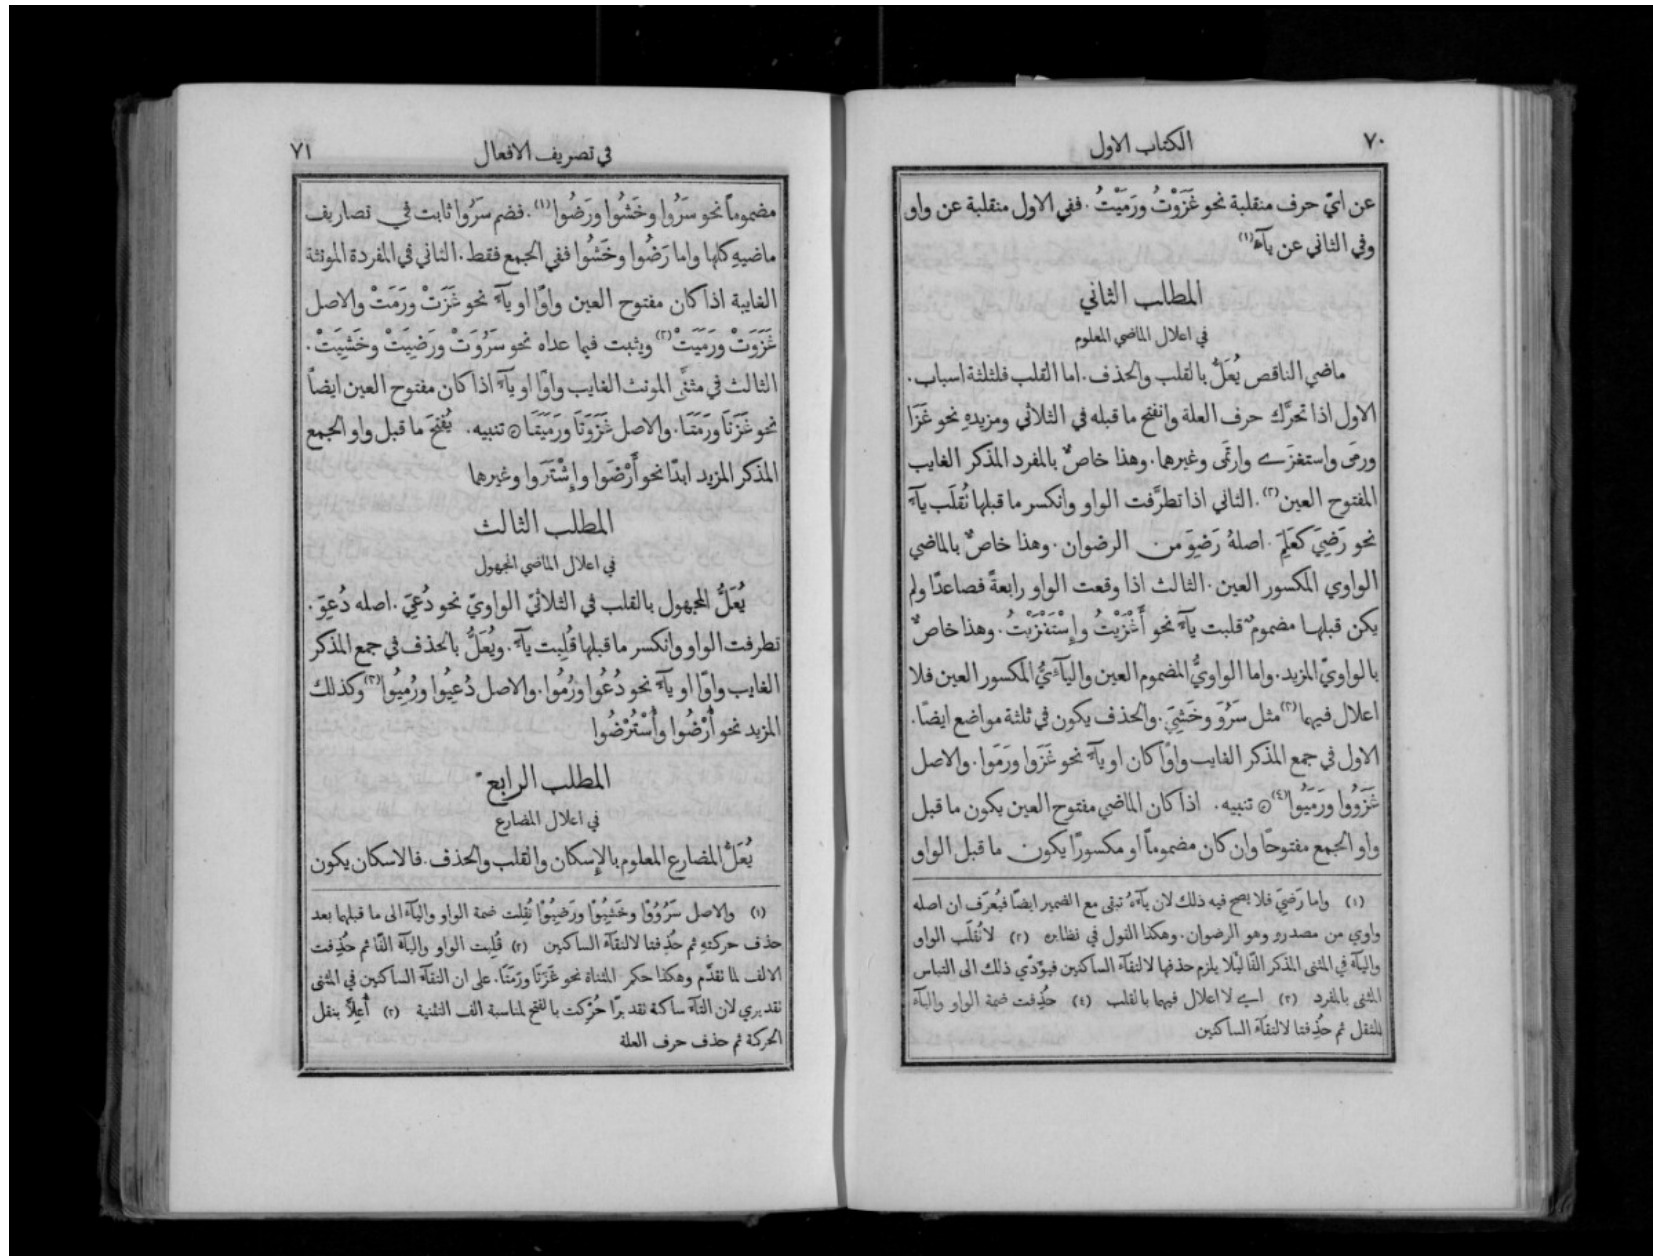 ٧٠
الكتاب الاول
عن ايّ حرف منقلبة نحو غَزَوْتُ ورَمَيْتُ. ففي الاول منقلبة عن واو
وفي الثاني عن يآء (١)
المطلب الثاني
في اعلال الماضي المعلوم
ماضي الناقص يُعَلُّ بالقلب والحذف. اما القلب فلثلثة اسباب.
الاول اذا تحرَّك حرف العلة وانفتح ما قبله في الثلاثي ومزيدهِ نحو غَزَا
ورمَى واستغزَى وارتَمى وغيرهما. وهذا خاصٌّ بالمفرد المذكر الغايب
المفتوح العين (٢). الثاني اذا تطرَّفت الواو وانكسر ما قبلها تُقلَب يآءً
نحو رَضِيَ كعَلِمَ. اصلهُ رَضِوَ من الرضوان. وهذا خاصٌّ بالماضي
الواوي المكسور العين. الثالث اذا وقعت الواو رابعةً فصاعدًا ولم
يكن قبلها مضموم قلبت يآءً نحو أَغْزَيْتُ وإِسْتَغْزَيْتُ. وهذا خاصٌّ
بالواويّ المزيد. واما الواويُّ المضموم العين واليآءيُّ المكسور العين فلا
اعلال فيهما (٣) مثل سَرُوَ وخَشِيَ. والحذف يكون في ثلثة مواضع ايضًا.
الاول في جمع المذكر الغايب واوًا كان او يآءً نحو غَزَوا ورَمَوا. والاصل
غَزَوُوا ورَمَيُوا (٤) ۞ تنبيه. اذا كان الماضي مفتوح العين يكون ما قبل
واو الجمع مفتوحًا وان كان مضمومًا او مكسورًا يكون ما قبل الواو
(١) واما رَضِيَ فلا يصح فيه ذلك لان يآءَهُ تبقى مع الضمير ايضًا فيُعرَف ان اصله
واوي من مصدرهِ وهو الرضوان. وهكذا القول في نظايره (٢) لا تُقلَب الواو
واليآء في المثنى المذكر الفًا ليلا يلزم حذفها لالتقآء الساكنين فيؤدّي ذلك الى التباس
المثنى بالمفرد (٣) اي لا اعلال فيهما بالقلب (٤) حُذِفت ضمة الواو واليآء
للثقل ثم حُذِفتا لالتقآء الساكنين
في تصريف الافعال
٧١
مضمومًا نحو سَرُوا وخَشُوا ورَضُوا (١). فضم سَرُوا ثابت في تصاريف
ماضيهِ كلها واما رَضُوا وخَشُوا ففي الجمع فقط. الثاني في المفردة المونثة
الغايبة اذا كان مفتوح العين واوًا او يآءً نحو غَزَتْ ورَمَتْ والاصل
غَزَوَتْ ورَمَيَتْ (٢) ويثبت فيما عداه نحو سَرُوَتْ ورَضِيَتْ وخَشِيَتْ.
الثالث في مثنَّى المونث الغايب واوًا او يآءً اذا كان مفتوح العين ايضًا
نحو غَزَتَا ورَمَتَا. والاصل غَزَوَتَا ورَمَيَتَا ۞ تنبيه. يُفتَح ما قبل واو الجمع
المذكر المزيد ابدًا نحو أَرْضَوا وإِشْتَرَوا وغيرهما
المطلب الثالث
في اعلال الماضي المجهول
يُعَلُّ المجهول بالقلب في الثلاثيّ الواويّ نحو دُعِيَ. اصله دُعِوَ.
تطرفت الواو وانكسر ما قبلها قُلِبت يآءً. ويُعَلُّ بالحذف في جمع المذكر
الغايب واوًا او يآءً نحو دُعُوا ورُمُوا. والاصل دُعِيُوا ورُمِيُوا (٣) وكذلك
المزيد نحو أُرْضُوا وأُسْتُرْضُوا
المطلب الرابع
في اعلال المضارع
يُعَلُّ المضارع المعلوم بالإِسكان والقلب والحذف. فالاسكان يكون
(١) والاصل سَرُوُوْا وخَشِيُوْا ورَضِيُوْا نُقِلت ضمة الواو واليآء الى ما قبلهما بعد
حذف حركتهِ ثم حُذِفتا لالتقآء الساكنين (٢) قُلِبت الواو واليآء الفًا ثم حُذِفت
الالف لما تقدَّم وهكذا حكم المثناة نحو غَزَتَا ورَمَتَا. على ان التقآء الساكنين في المثنى
تقديري لان التآء ساكنة تقديرًا حُرِّكت بالفتح لمناسبة الف التثنية (٣) أُعِلاَّ بنقل
الحركة ثم حذف حرف العلة